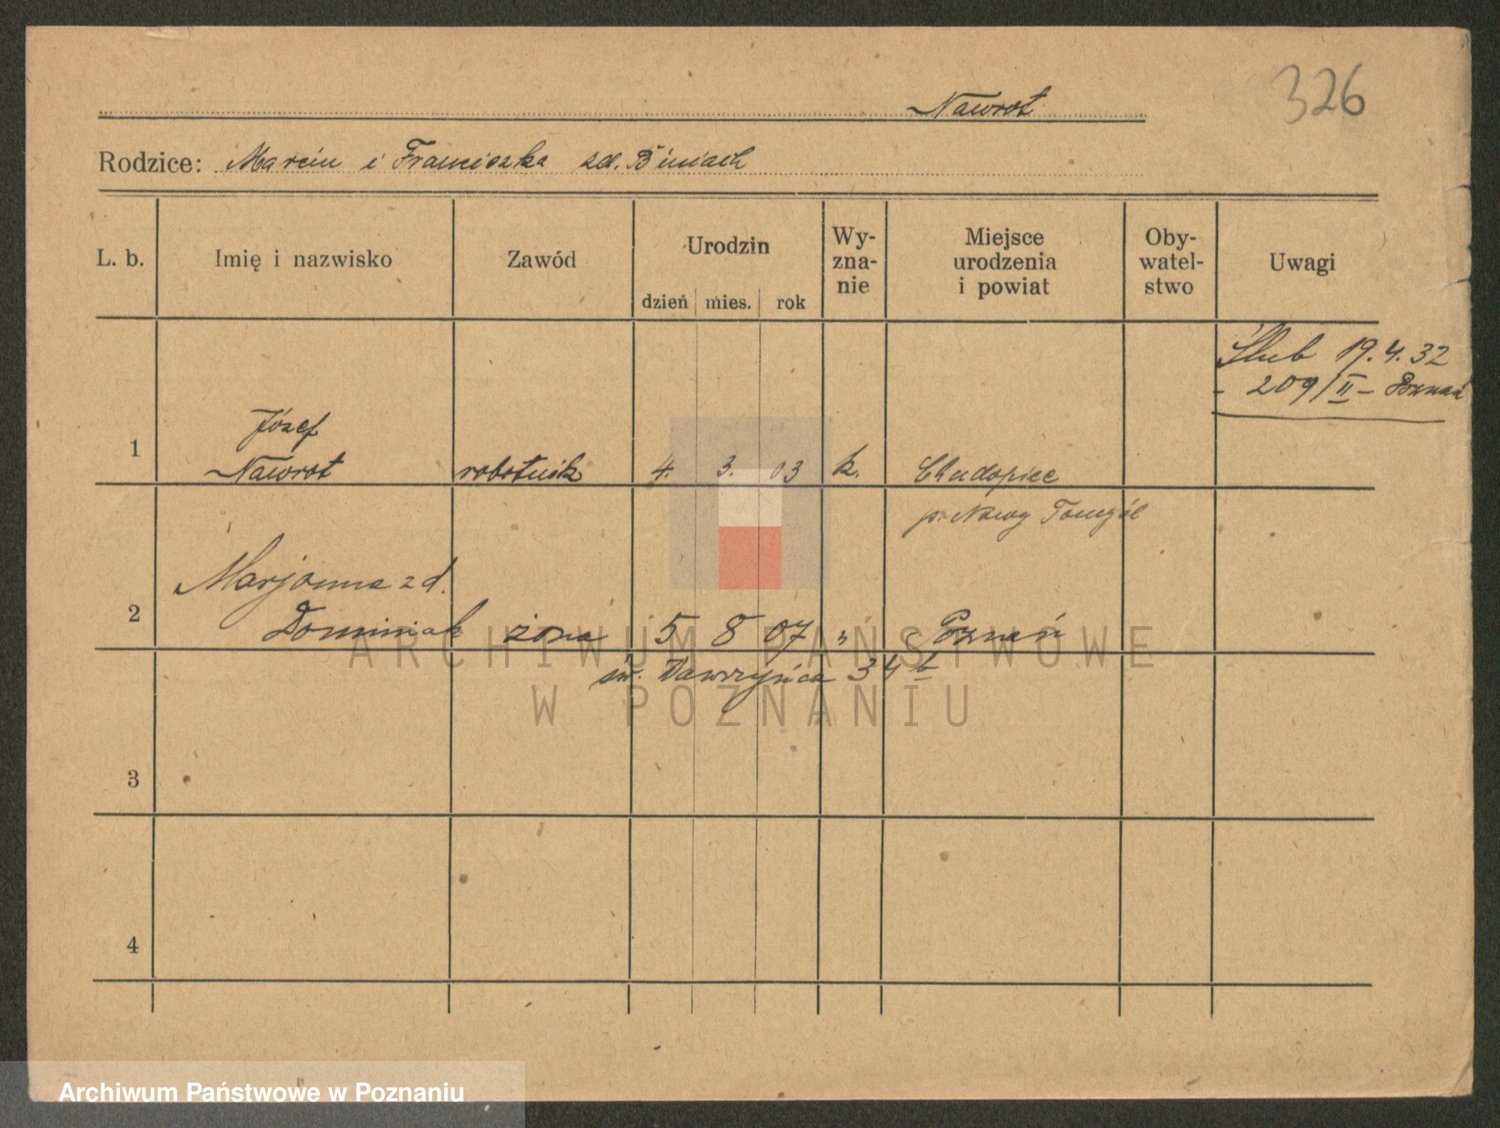 326
Nawrot
Rodzice: Marcin i Franciszka zd. Biniach
L. b.
Imię i nazwisko
Zawód
Urodzin
dzień mies. rok
Wy-
zna-
nie
Miejsce
urodzenia
i powiat
Oby-
watel-
stwo
Uwagi
Ślub 19.4.32
- 209/II - Poznań
1
Józef
Nawrot robotnik 4. 3. 03 k.
p. Nowy Tomyśl
2
Marjanna zd.
Dominiak żona 5 8 07 " Poznań
św. Wawrzyńca 34 b
3
4
ARCHIWUM PAŃSTWOWE
W POZNANIU
Archiwum Państwowe w Poznaniu